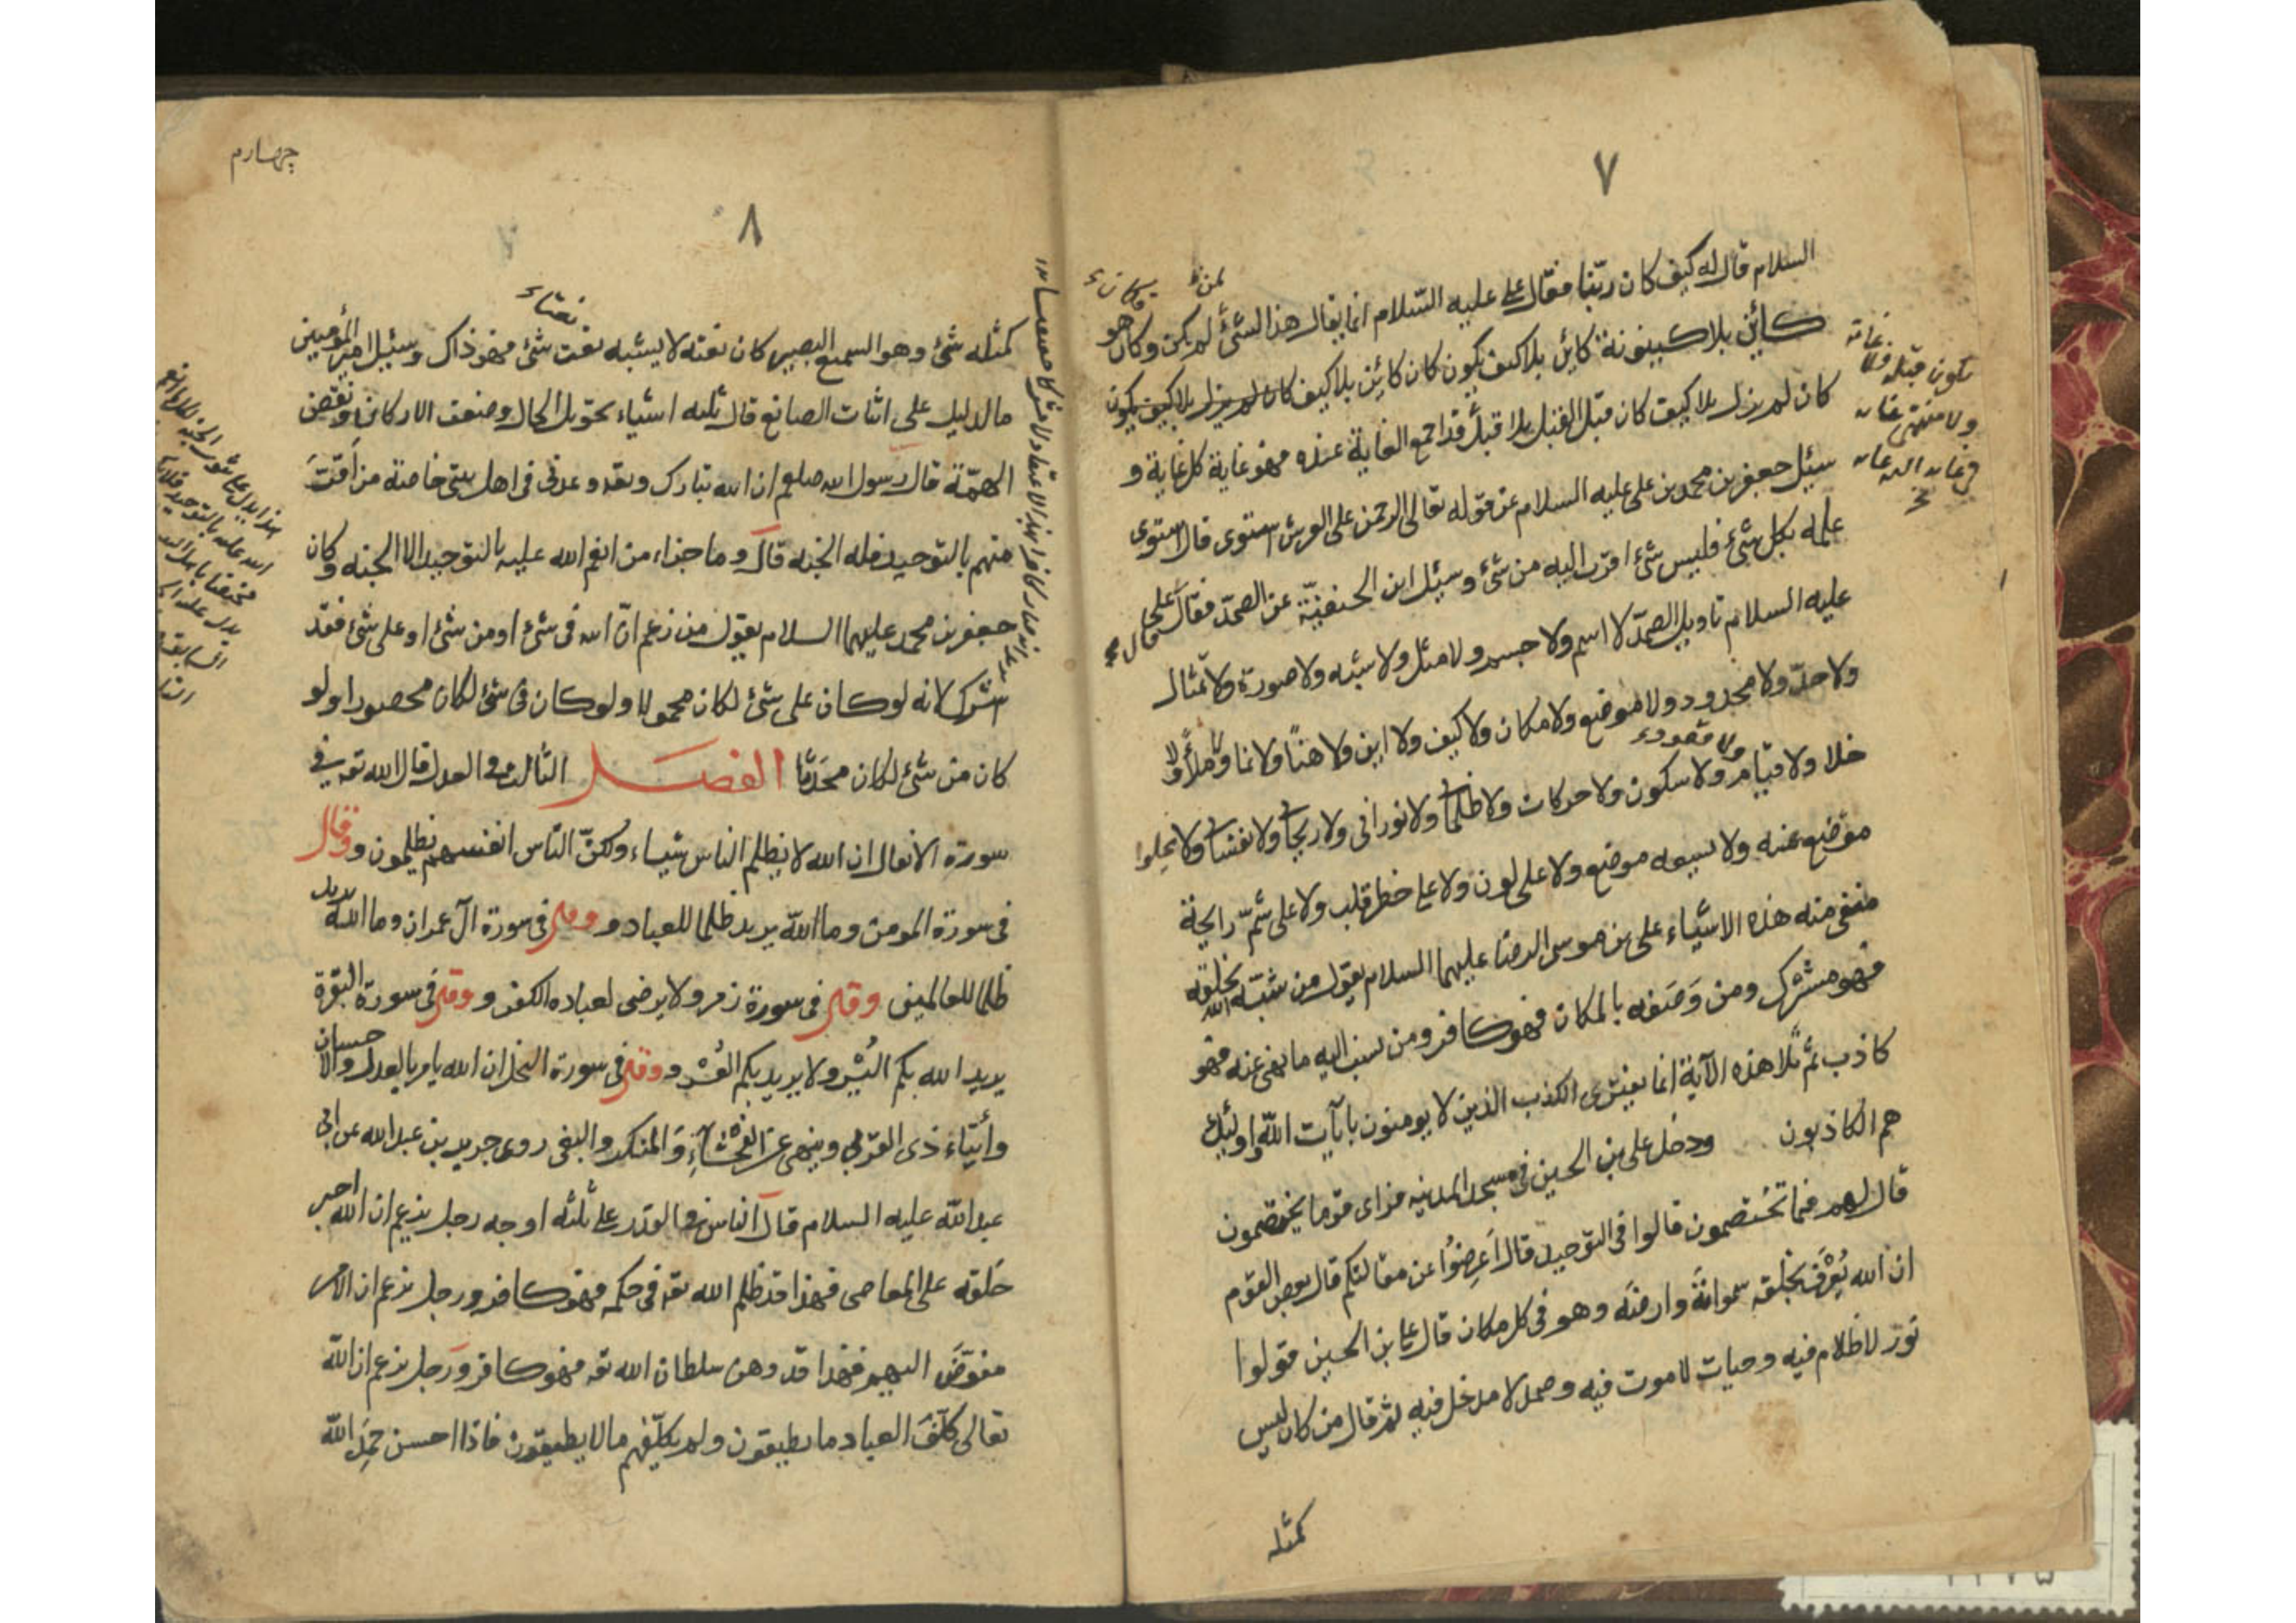 ٧
السلام قال له كيف كان ربّنا فقال علي عليه السّلام انما يقال هذا لشئ لم يكن وكان هو
كائن بلا كينونة كائن بلا كيف يكون كان كائن بلا كيف كان لم يزل بلا كيف يكون
كان لم يزل بلا كيف كان قبل القبل بلا قبل قد اجمع الغاية عنده فهو غاية كل غاية و
سئل جعفر بن محمد بن علي عليه السلام عن قوله تعالى الرحمن على العرش استوى قال استوى
علمه بكل شئ فليس شئ اقرب اليه من شئ وسئل ابن الحنفيّة عن الصمد فقال على
عليه السلام تاويل الصمد لا اسم ولا جسم ولا مثل ولا شبه ولا صورة ولا تمثال
ولا حدّ ولا محدود ولا موضع ولا مكان ولا كيف ولا اين ولا هنا ولا ثما ولا ملأ ولا
خلا ولا قيام ولا سكون ولا حركات ولا ظلماني ولا نوراني ولا روحاني ولا نفساني ولا يخلوا
موضع عنه ولا يسعه موضع ولا على لون ولا على خطر قلب ولا على شمّ رايحة
منفى منه هذه الاشياء على بن موسى الرضا عليهما السلام يقول من شبّه الله بخلقه
فهو مشرك ومن وصفه بالمكان فهو كافر ومن نسب اليه ما نهى عنه فهو
كاذب ثم تلا هذه الآية انما يفترى الكذب الذين لا يومنون بايات الله واولئك
هم الكاذبون ودخل على بن الحسين في مسجد المدينه فراى قوما يختصمون
قال لهم فيما تختصمون قالوا في التوحيد قال اعرضوا عن مقالتكم قال بعض القوم
ان الله يُعرَف بخلقه سمواته وارضه وهو في كل مكان قال على بن الحسين قولوا
نور لا ظلام فيه وحيات لا موت فيه وصمد لا مدخل فيه ثم قال من كان ليس
كمثله
چهارم
٨
كمثله شئ وهو السميع البصير كان نعته لا يشبه نعت شئ فهو ذاك وسئل امير المؤمنين
ما الدليل على اثبات الصانع قال ثلثه اشياء تحويل الحال وضعف الاركان ونقض
الهمّة قال رسول الله صلعم ان الله تبارك وتعه وعدنى فى اهل بيتى خاصة من اقرّ
منهم بالتوحيد فله الجنه قال وما جزاء من انعم الله عليه بالتوحيد الا الجنه وكان
جعفر بن محمد عليهما السلام يقول من زعم انّ الله فى شئ او من شئ او على شئ فقد
اشرك لانه لو كان على شئ لكان محمولا ولو كان فى شئ لكان محصورا ولو
كان من شئ لكان محدثا الفصل الثالث فى العدل قال الله تعه في
سورة الانفال ان الله لا يظلم الناس شياء ولكنّ النّاس انفسهم يظلمون و وقال
فى سورة المومن وما الله يريد ظلما للعباد و وقال فى سورة آل عمران وما الله يريد
ظلما للعالمين وقال فى سورة زمر ولا يرضى لعباده الكفر و وقال فى سورة البقرة
يريد الله بكم اليُسر ولا يريد بكم العُسر و وقال فى سورة النحل ان الله يامر بالعدل والاحسان
وأيتاء ذى القربى وينهى عن الفحشاء والمنكر والبغى روى جرير بن عبد الله عن ابى
عبد الله عليه السلام قال الناس فى القدر على ثلثه اوجه رجل يزعم ان الله اجبر
خلقه على المعاصى فهذا قد ظلم الله تعه فى حكمه فهو كافر ورجل يزعم ان الامر
مفوّض اليهم فهذا قد وهن سلطان الله تعه فهو كافر ورجل يزعم ان الله
تعالى كلّف العباد ما يطيقون ولم يكلّفهم ما لا يطيقون فاذا احسن حمد الله